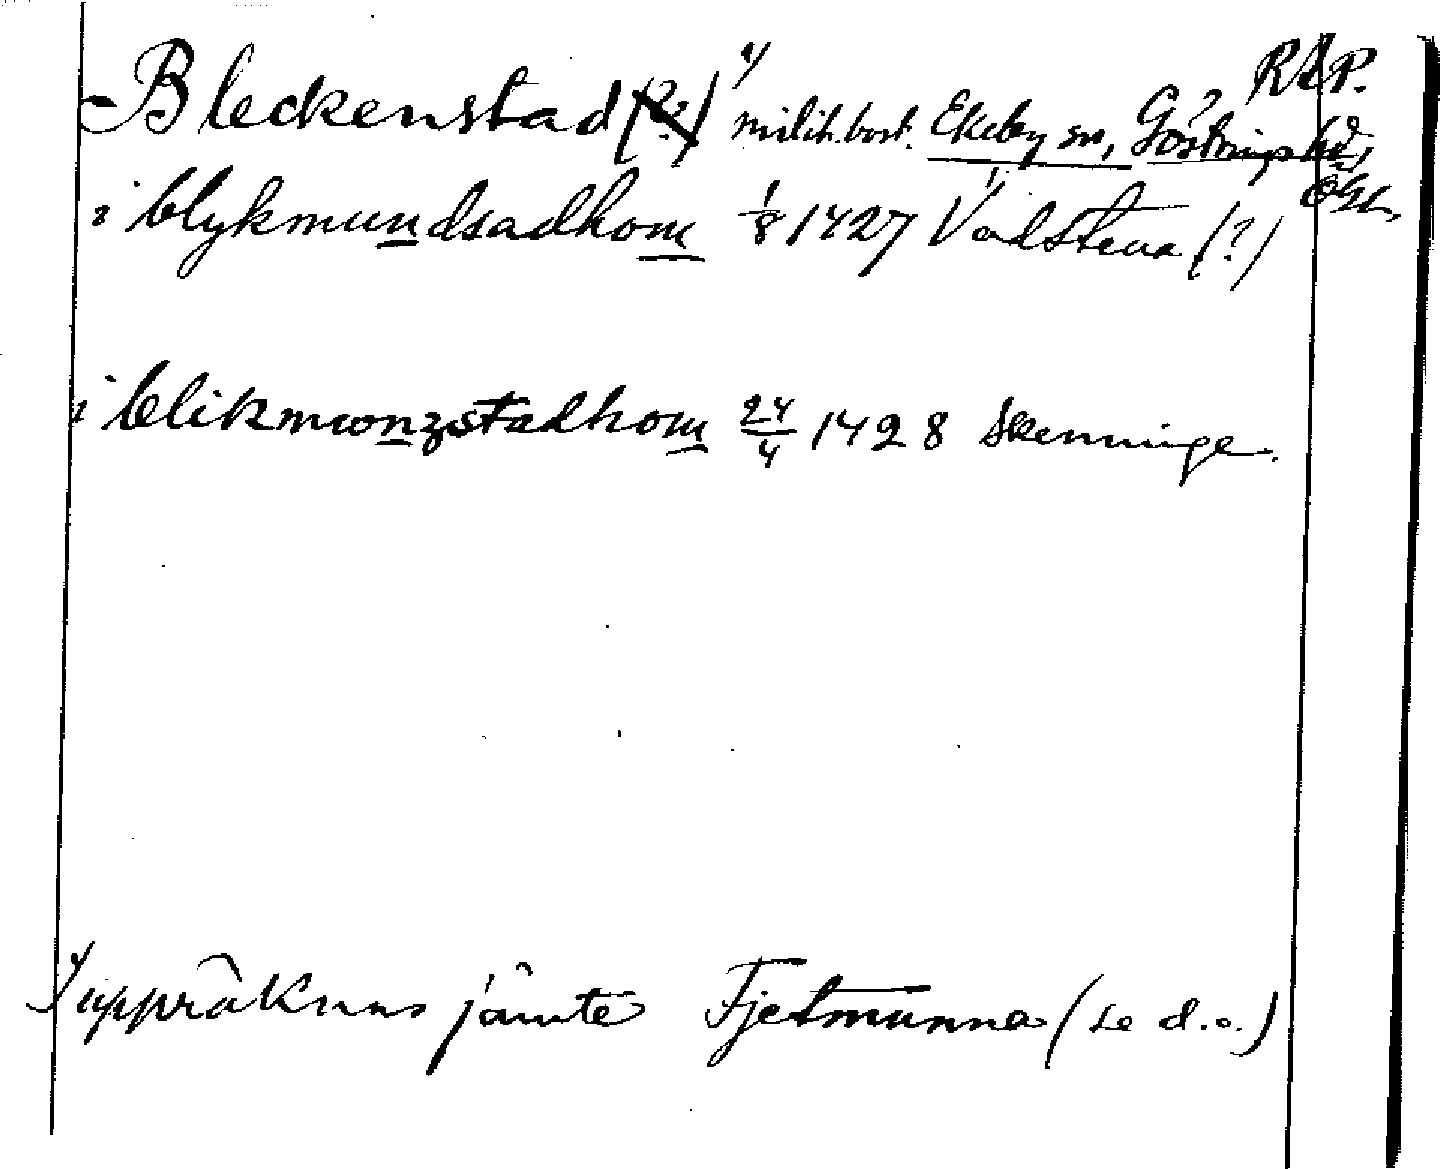 RAP.
Bleckenstad (?) 1) milit.bost. Ekeby sn, Göstrings hd, Ögl.
i blykmundsadhom 1/8 1427 Vadstena (?)
i blikmwnzstadhom 24/4 1428 Skenninge.
1) uppräknas jämte Fjetmunna (se d.o.)